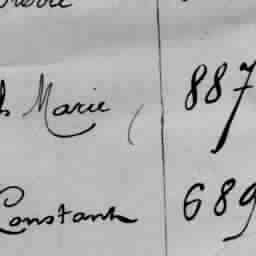 Marie 887
Constant 689